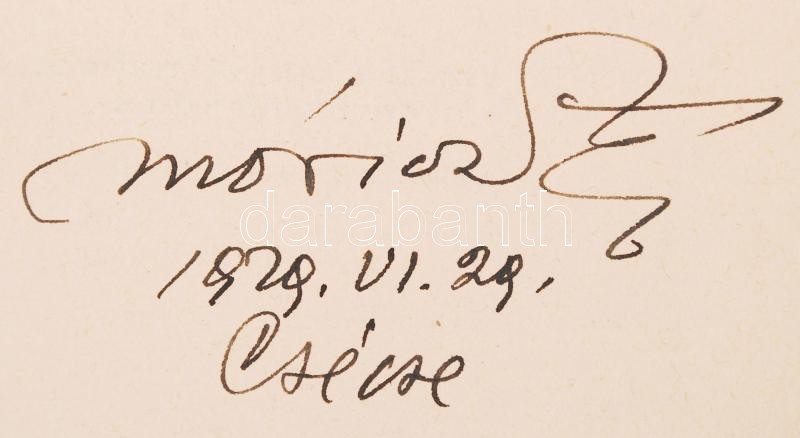 Móricz Zs
1929. VI. 29.
Csécse
darabanth